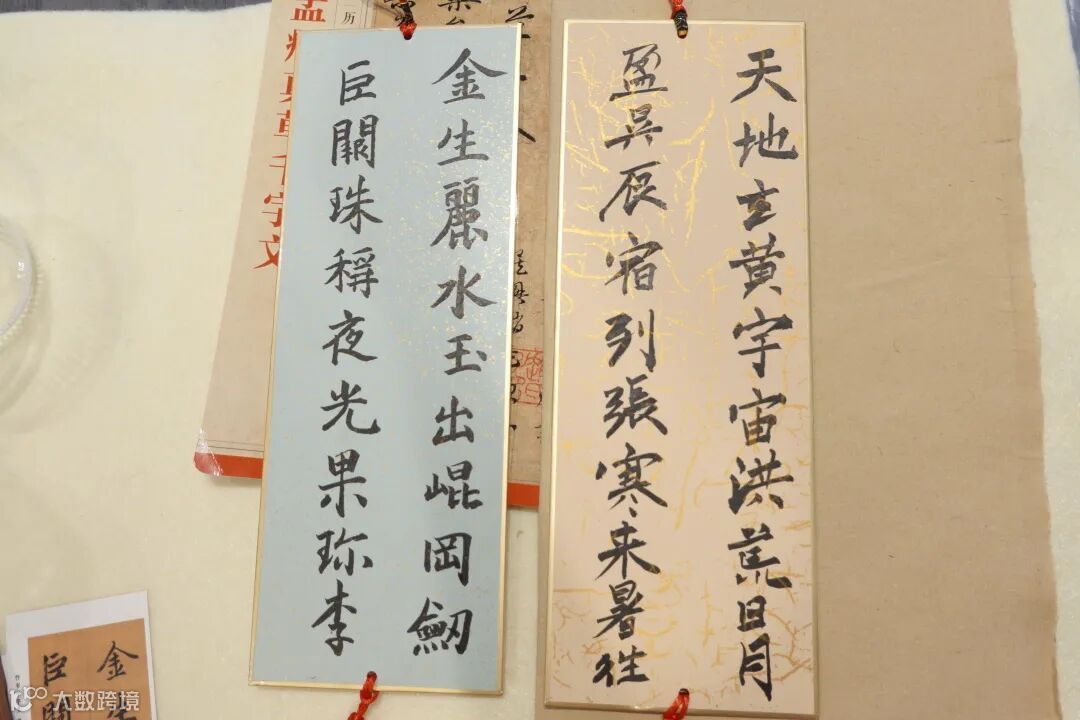 天地玄黄宇宙洪荒日月
盈昃辰宿列張寒来暑往
金生麗水玉出崐岡劒
巨闕珠稱夜光果珎李
历
孟頫真草千字文
金生
巨闕
大数跨境